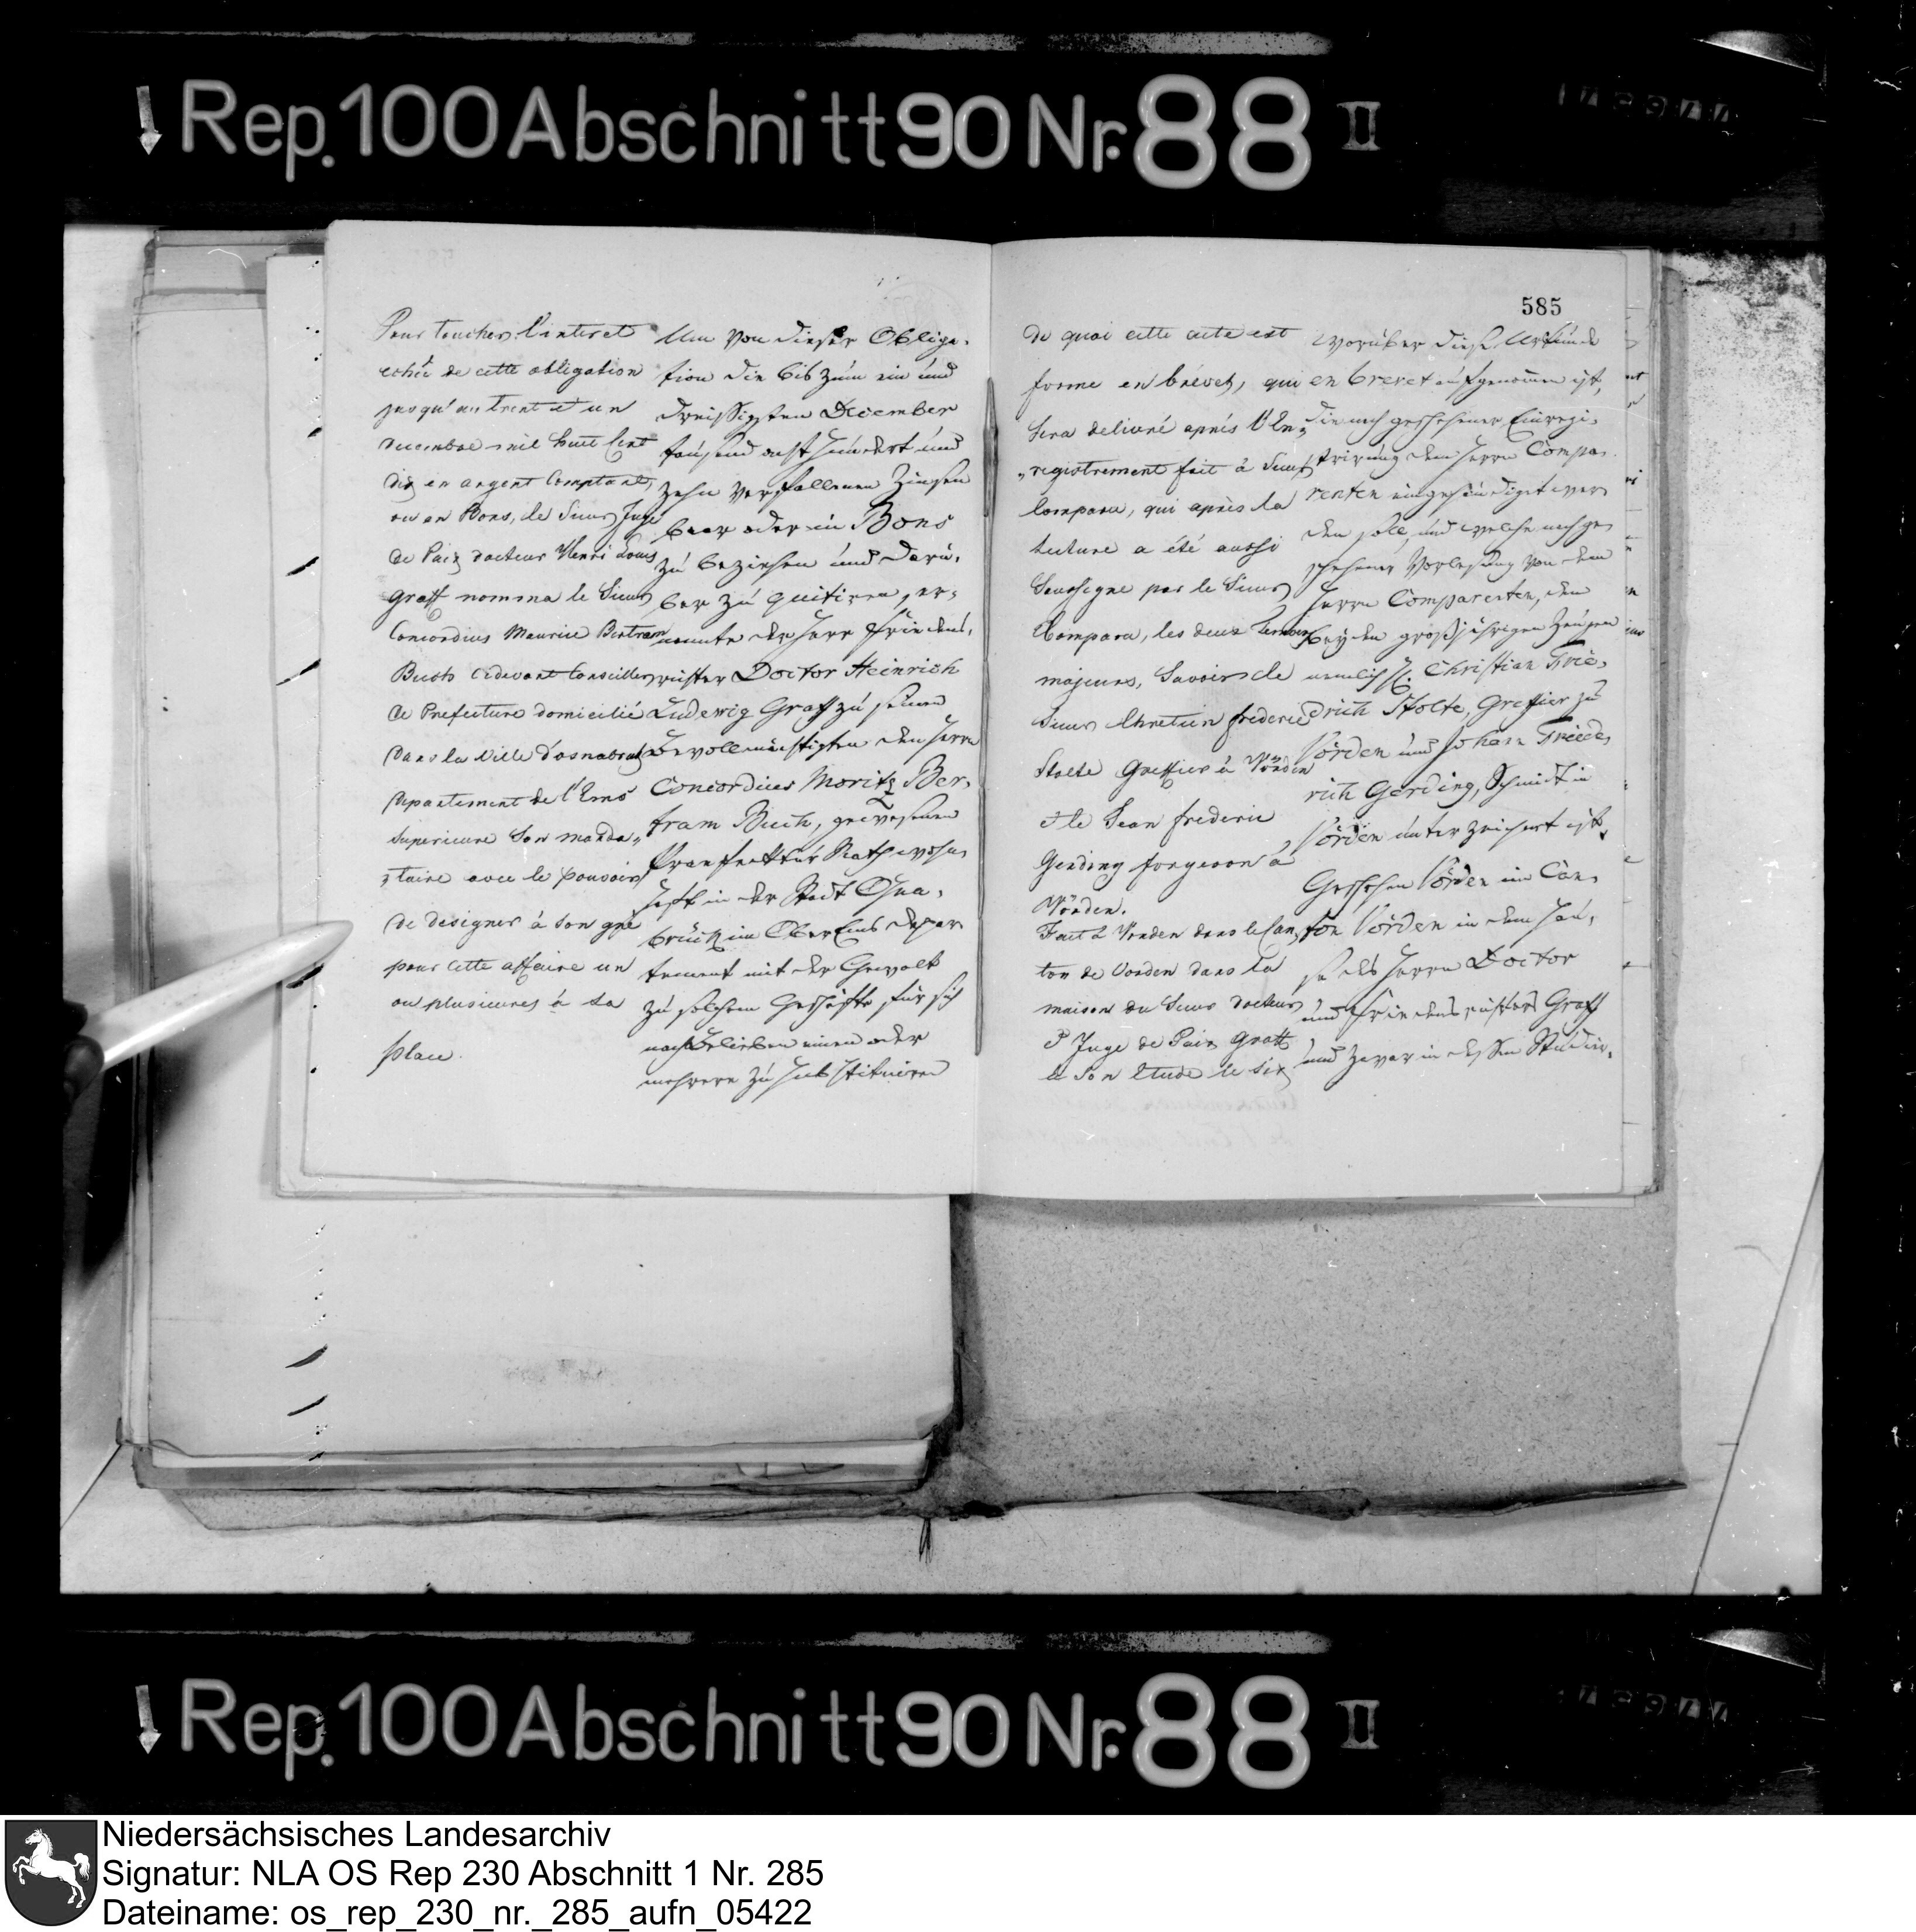 Rep. 100 Abschnitt 90 Nr. 88 II
585
Pour toucher l'interet
echeé de cette obligation
jusqu'au trent et un
Decembre mil huit Cent
dix en argent Comptant,
ou en Bons, le Sieur Juge
de Paix docteur Henri Louis
Graff nomma le Sieur
Concordius Maurice Bertram
Buch cidevant Conseiller
de Prefecture domicilié
dans la Ville d'osnabruck
Departement de l'Ems
Superieure Son manda„
„taire avec le pouvoir
de designer à Son gré
pour cette affaire un
ou plusieures à Sa
place.
Um von dieser Obliga-
tion die bis zum ein und
dreissigsten December
tausend acht hundert und
zehn verfallenen Zinsen
baar oder in Bons
zu beziehen und darü-
ber zu quitiren, er-
nannte der Herr Friedens-
richter Doctor Heinrich
Ludewig Graff zu seinem
Bevollmächtigten den Herrn
Concordius Moritz Ber-
tram Buch, gewesenen
Praefecktur Rath wohn
haft in der Stadt Osna-
brück im Ober Ems Depar
tement mit der Gewalt
zu solchem Geschäfte für sich
nach Belieben einen oder
mehrere zu substituiren
De quoi cette acte est
forme en brévet, qui
Sera delivré après l'En„
„registrement fait à Sieur
Compara, qui après la
lecture a été aussi
Soussigne par le Sieur
Compara, les deux temoins
majeurs, Savoir de
Sieur Chretien frederic
Stolte Greffier à Vörden
et le Jean frederic
Gerding forgeron à
Vörden.
Fait à Vorden dans le Can„
ton de Vorden dans la
maison du Sieur docteur
et Juge de Paix Graff
à Son Etude le Six
Worüber diese Urkunde
en brevet aufgenommen ist,
die nach geschehener Einregi-
strirung dem Herrn Compa-
renten eingehändiget wer
den soll, und welche nach ge
schehener Vorlesung von dem
Herrn Comparenten, den
beyden großjährigen Zeugen
nemlich H. Christian Frie-
drich Stolte, Greffier zu
Vörden und Johann Friede-
rich Gerding, Schmidt in
Vörden unterzeichnet ist.
Geschehen Vörden im Can-
ton Vörden in dem Hau-
se des Herrn Doctor
und Friedensrichters Graff
und zwar in dessen Studier-
Rep. 100 Abschnitt 90 Nr. 88 II
Niedersächsisches Landesarchiv
Signatur: NLA OS Rep 230 Abschnitt 1 Nr. 285
Dateiname: os_rep_230_nr._285_aufn_05422